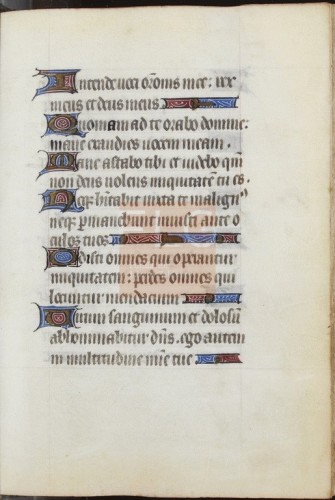 Intende voci orõnis mee: rex
meus et deus meus.
Quoniam ad te orabo domine:
mane exaudies vocem meam.
Mane astabo tibi et videbo qm̃
non deus volens iniquitatem tu es.
Neq; hitabit iuxta te malign9
neq; pmanebunt iniusti ante o
culos tuos.
Odisti omnes qui operantur
iniquitatem: perdes omnes qui
locuntur mendacium
Virum sanguinum et dolosũ
abhominabitur dñs. ego autem
in multitudine mĩe tue